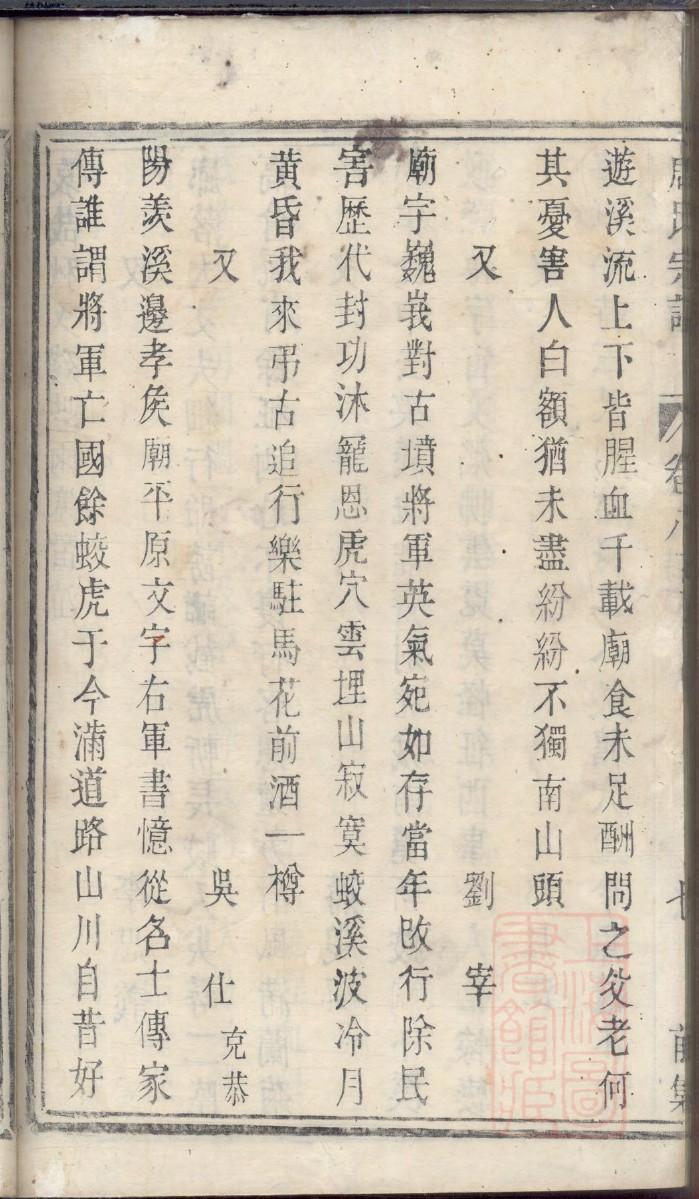 遊溪流上下皆腥血千載廟食未足酬問之父老何
其憂害人白額猶未盡紛紛不獨南山頭
又 劉宰
廟宇巍峩對古墳將軍英氣宛如存當年改行除民
害歷代封功沐寵恩虎穴雲埋山寂寞蛟溪波冷月
黃昏我來弔古追行樂駐馬花前酒一樽
又 吳仕克恭
陽羨溪邊孝侯廟平原文字右軍書憶從名士傳家
傳誰謂將軍亡國餘蛟虎于今滿道路山川自昔好